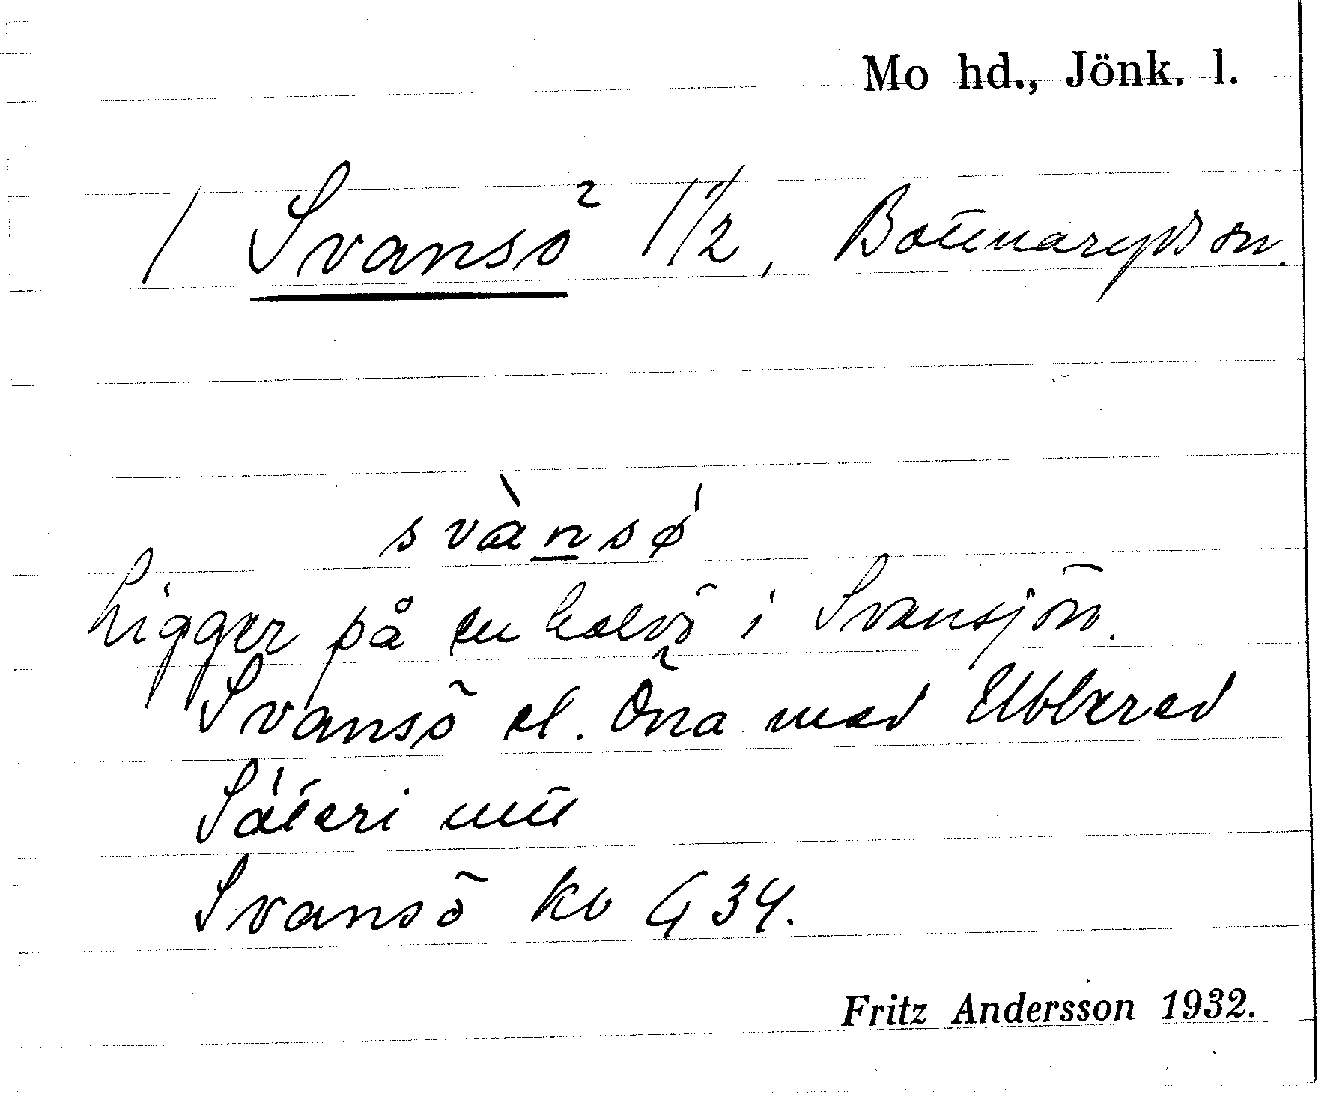 Mo hd., Jönk. l.
/ Svansö 1 1/2, Bottnaryds sn.
svànsø
Ligger på en halvö i Svansjön.
Svansö el. Öna med Ubbarad
Säteri mtl
Svansö kb G 34.
Fritz Andersson 1932.